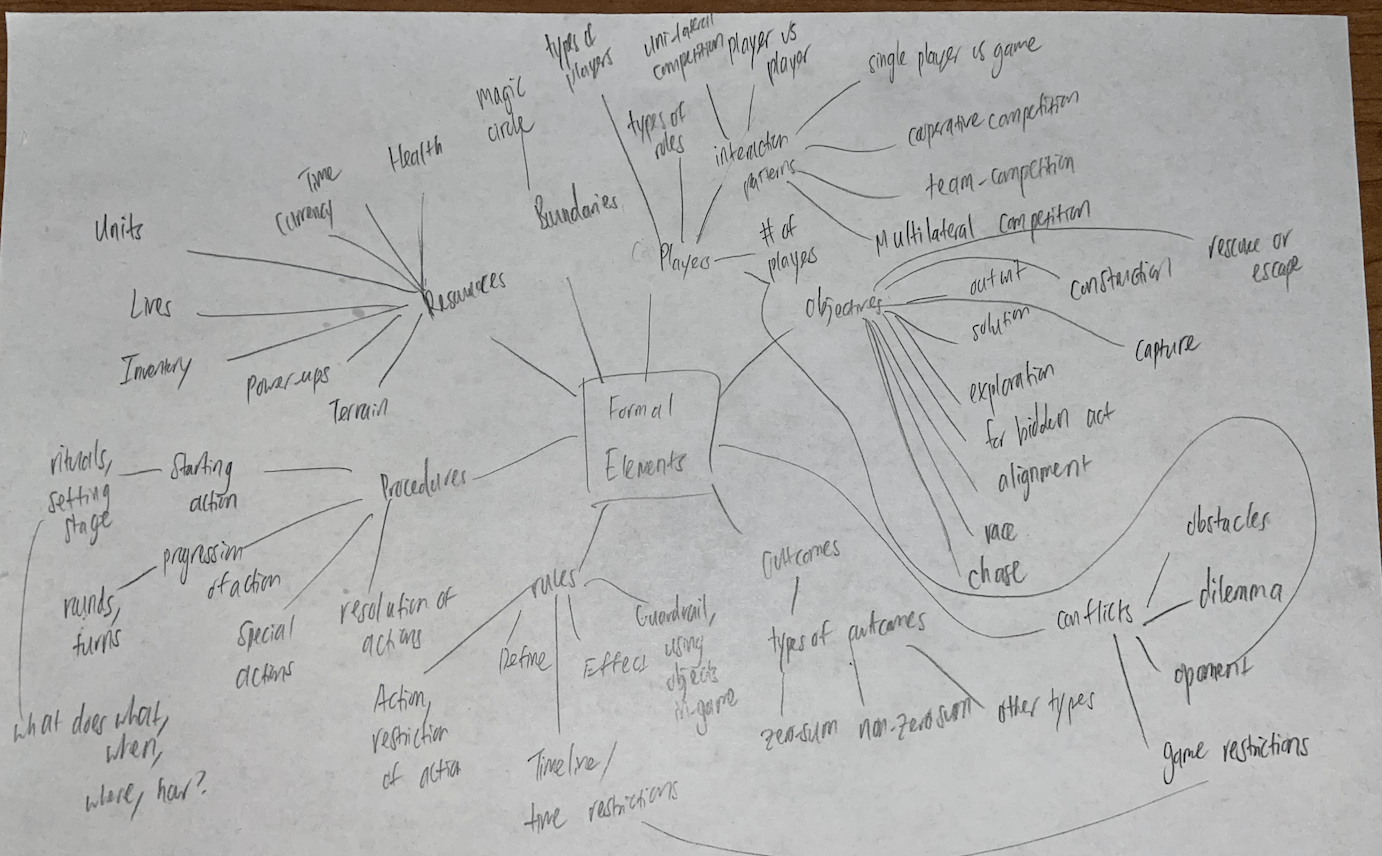 Formal
Elements
Boundaries
magic
circle
Players
types of
players
types of
roles
interaction
patterns
uni-lateral
competition
player vs
player
single player vs game
cooperative competition
team-competition
Multilateral competition
# of
players
Objectives
rescue or
escape
construction
outwit
capture
solution
exploration
forbidden act
alignment
race
chase
conflicts
obstacles
dilemma
oponent
game restrictions
Outcomes
types of outcomes
zero-sum
non-zero sum
other types
rules
Guardrail,
using
objects
in-game
Effect
Define
Timeline/
time restrictions
Action,
restriction
of action
Procedures
resolution of
actions
Special
actions
progression
of action
rounds,
turns
Starting
action
rituals,
setting
stage
what does what,
when,
where, how?
Resources
Health
Time
Currency
Units
Lives
Inventory
Power-ups
Terrain